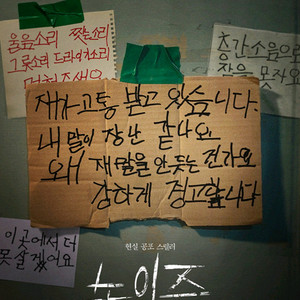 울음소리 쫓는소리
그릇소리 드라이소리
층간소음으로
잠을 못자요
제가 고통 받고 있습니다.
내 말이 장난 같나요
왜 제 말을 안 듣는 건가요
강하게 경고합니다
이곳에서 더
못 살겠어요
현실 공포 스릴러
노이즈